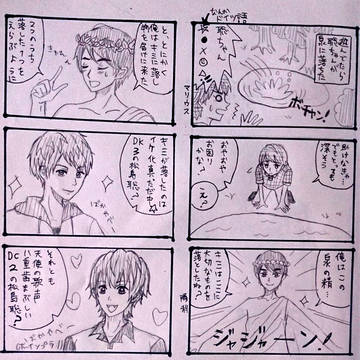 なんかドイツ語
遊んでたら
聡ちゃんが
泉に落ちた
聡ちゃん
マリウス
ボチャン!
助けなきゃ…
でもとっても
深そう
おやおや
お困り
かな?
え?
俺はこの
泉の精…
キミはここに
大切なものを
落としたね?
勝利
ジャジャーン!
と、とにかく
俺はキミに落し
物を届けに来た
2つのうち
落した1つを
えらぶように
キミが落したのは
イケ化真っただ中
DK3の松島聡?
それとも
天使の歌声
八重歯まぶしい
DC2の松島聡?